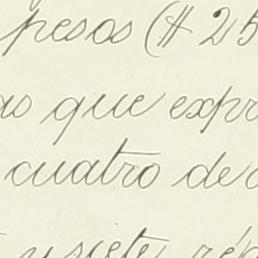 pesos ($ 25
as que expr
cuatro de
y siete